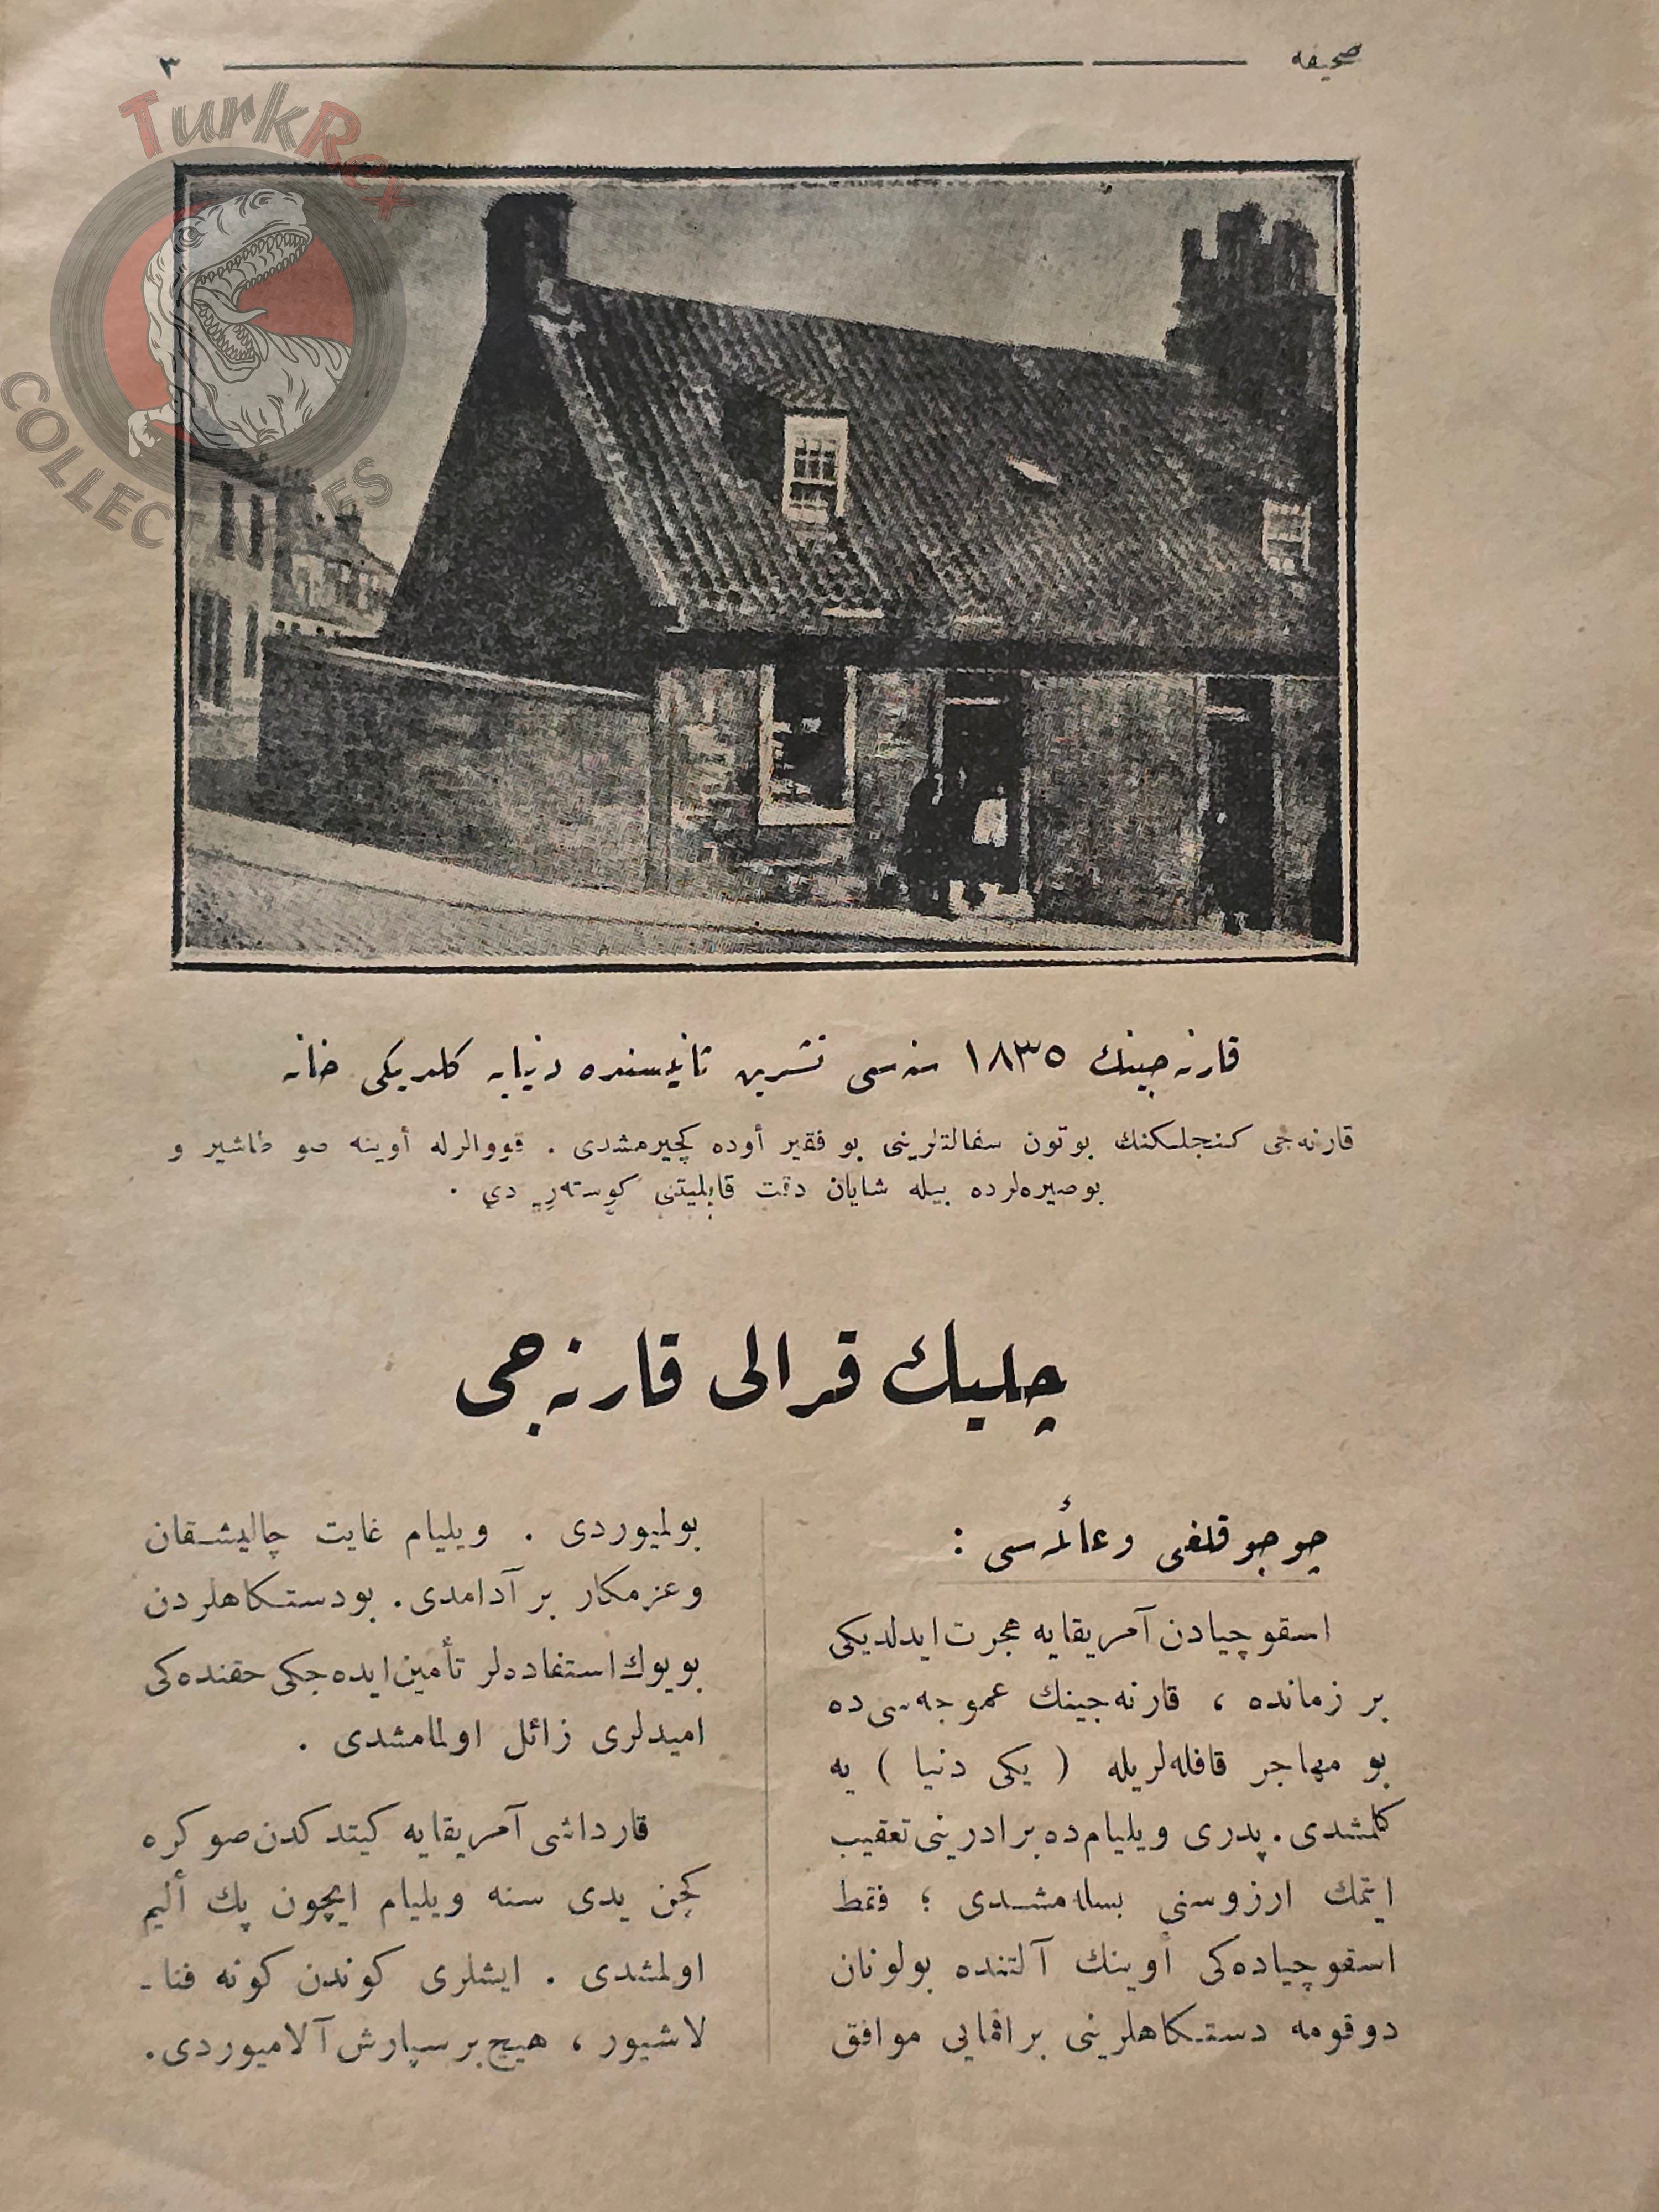 صحیفه
٣
TurkRex
COLLECTIBLES
قارنه‌جینك ١٨٣٥ سنه‌سی تشرین ثانیسنده دنیایه كلدیكی خانه
قارنه‌جی كنجلكنك بوتون سفالتلرینی بو فقیر أوده كچیرمشدی . قووالرله أوینه صو طاشیر و
بوصیره‌لرده بیله شایان دقت قابلیتی كوسته‌ریردی .
چلیك قرالی قارنه‌جی
چوجوقلغی وعائله‌سی :
اسقوچیادن آمریقایه هجرت ایدلدیكی
بر زمانده ، قارنه‌جینك عموجه‌سی‌ده
بو مهاجر قافله‌لریله ( یكی دنیا ) یه
كلمشدی . پدری ویلیام‌ده برادرینی تعقیب
ایتمك ارزوسنی بسله‌مشدی ؛ فقط
اسقوچیاده‌كی أوینك آلتنده بولونان
دوقومه دستكاهلرینی براقمایی موافق
بولمیوردی . ویلیام غایت چالیشقان
وعزمكار بر آدامدی . بودستكاهلردن
بویوك استفاده‌لر تأمین ایده‌جكی حقنده‌كی
امیدلری زائل اولمامشدی .
قارداشی آمریقایه كیتدكدن صوكره
كچن یدی سنه ویلیام ایچون پك ألیم
اولمشدی . ایشلری كوندن كونه فنا-
لاشیور ، هیچ بر سپارش آلامیوردی .